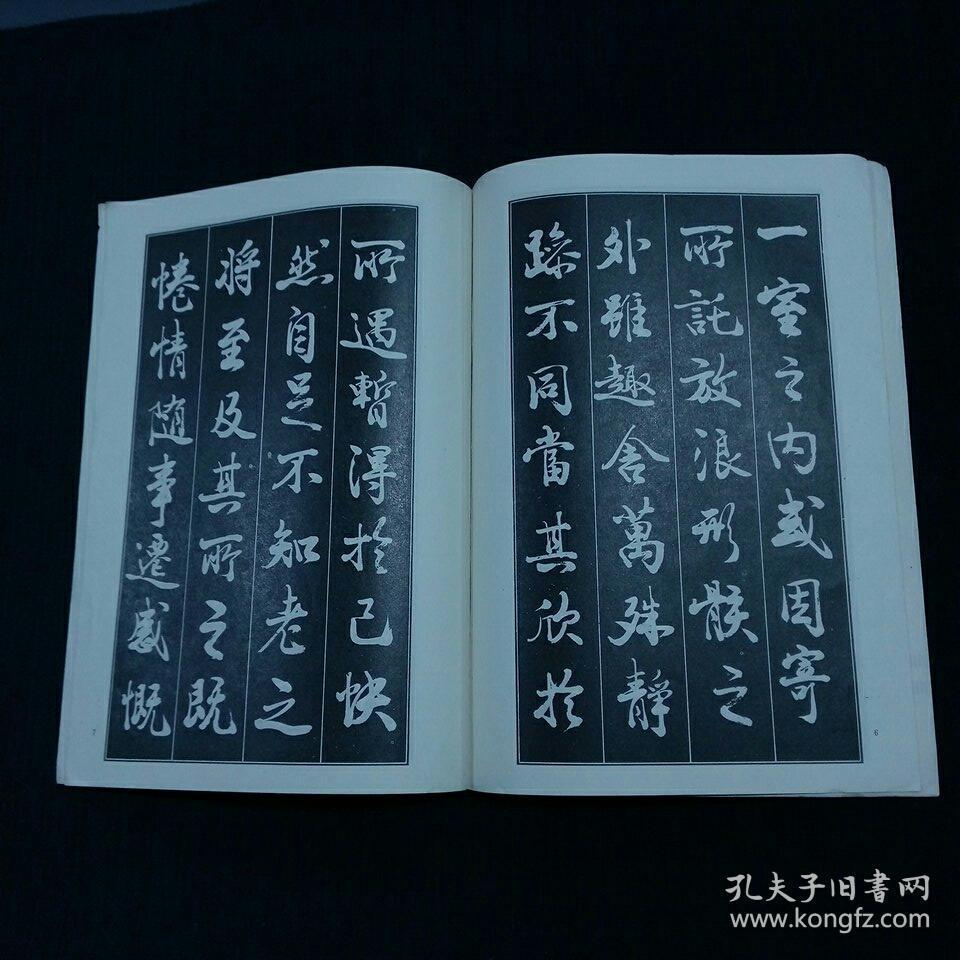 一室之内或因寄
所託放浪形骸之
外雖趣舍萬殊静
躁不同當其欣於
6
所遇暫得於己快
然自足不知老之
将至及其所之既
惓情随事遷感慨
7
孔夫子旧書网
www.kongfz.com